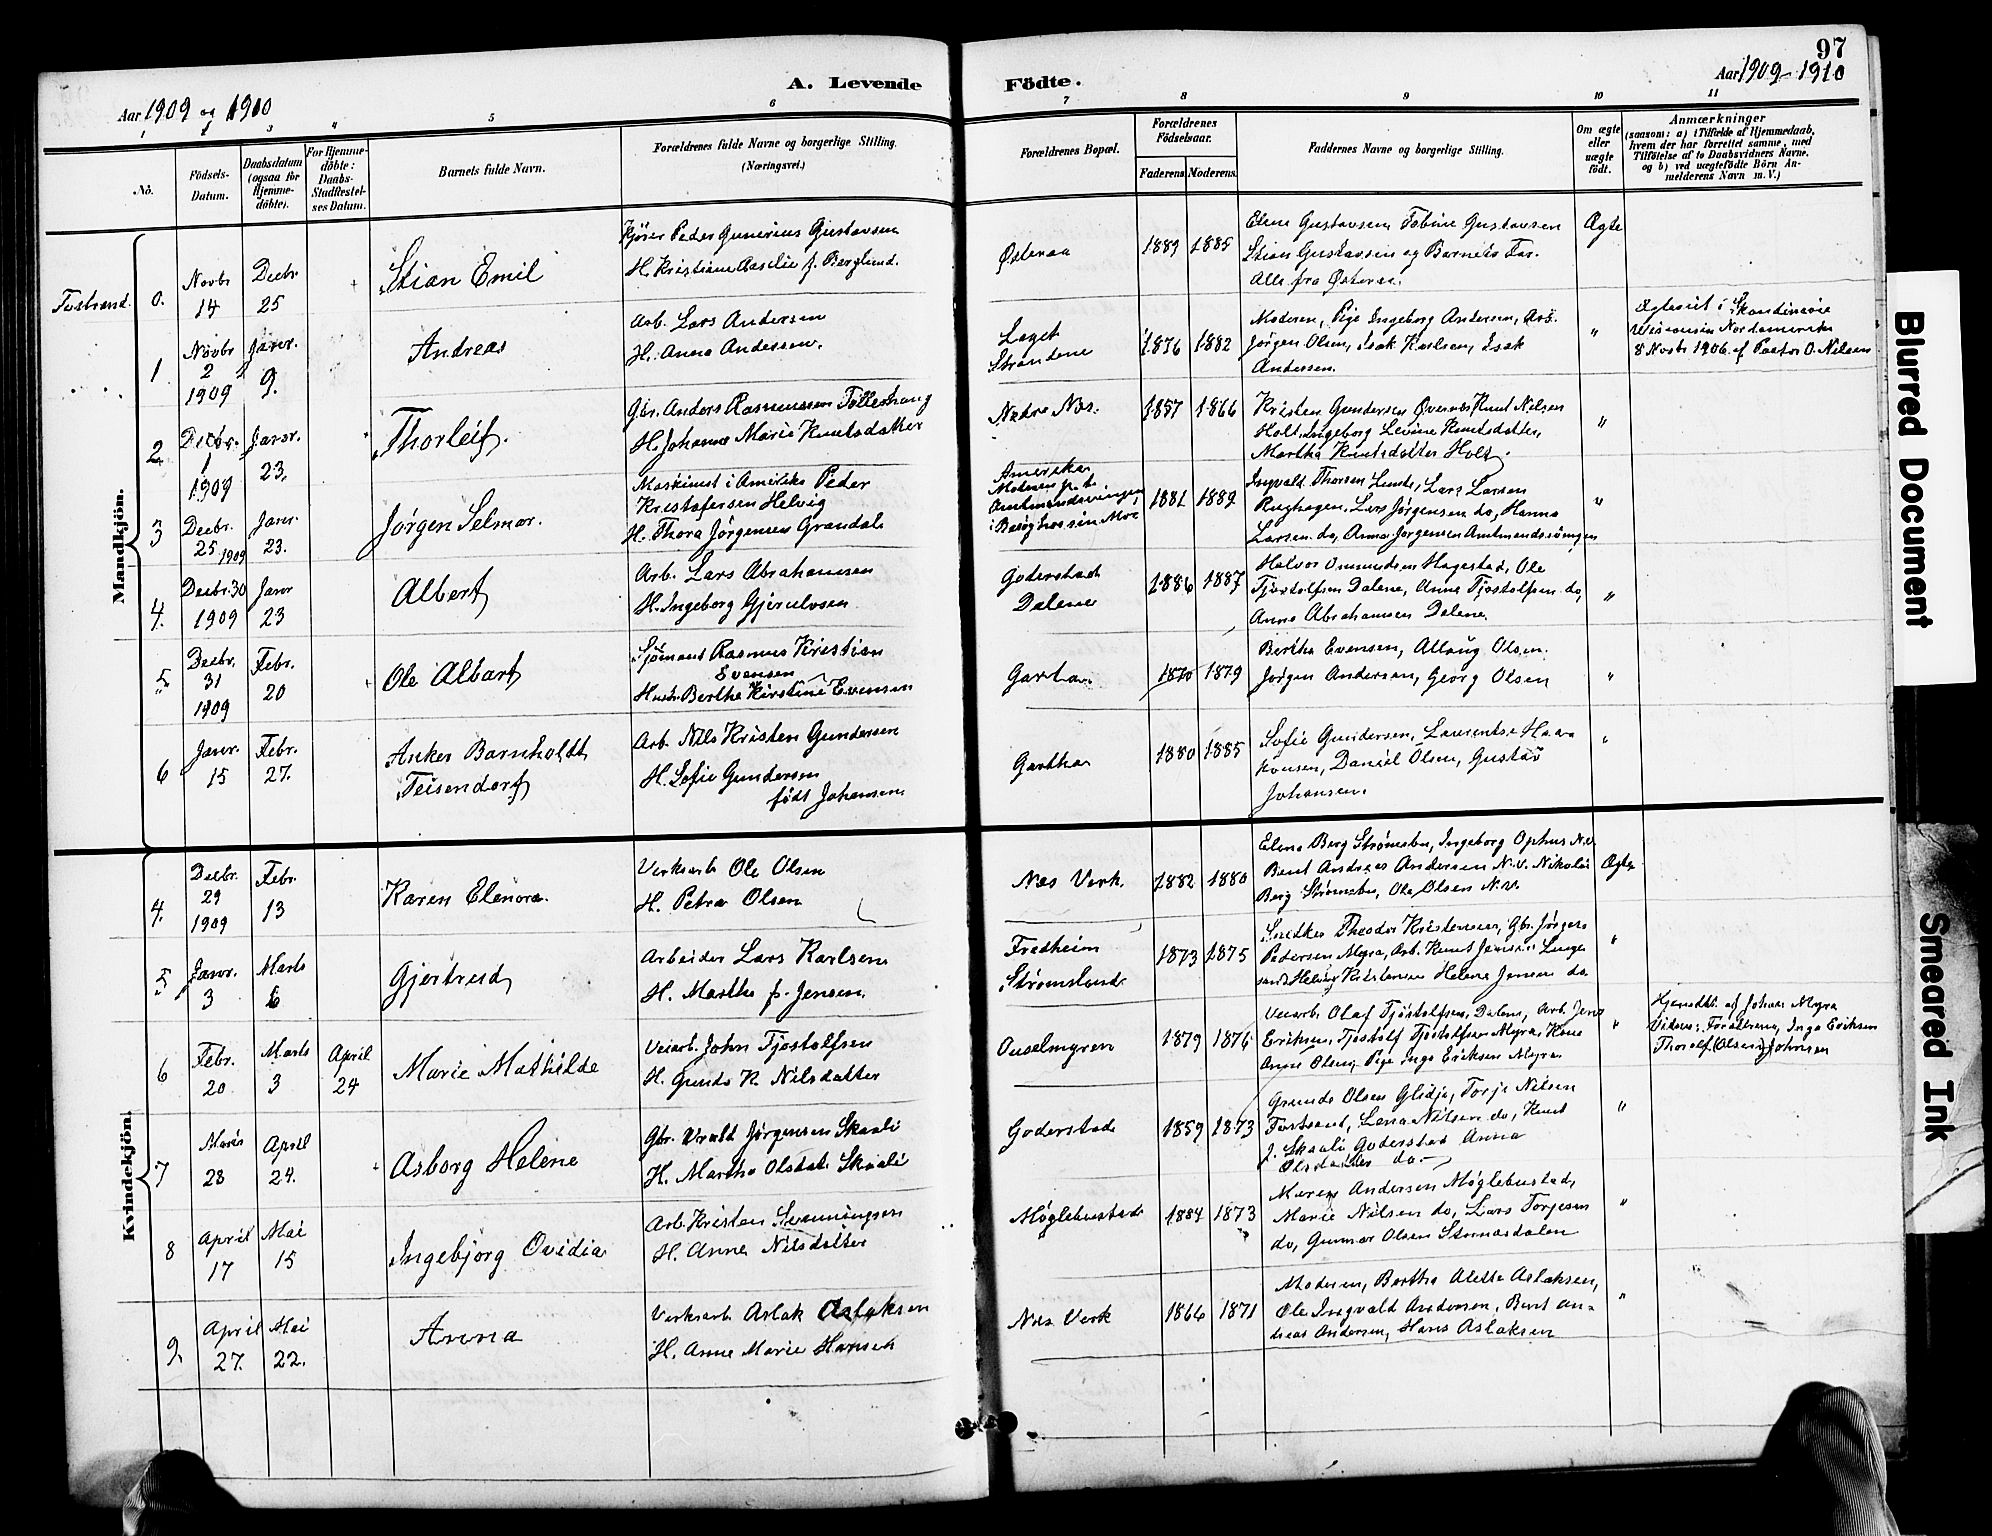 97
A. Levende Födte.
Aar 1909 og 1910
Aar 1909-1910
1 2 3 4 5 6 7 8 9 10 11
No.
Födsels-
Datum.
Daabsdatum
(ogsaa for
Hjemme-
döbte).
For Hjemme-
döbte:
Daabs-
Stadfæstel-
ses Datum.
Barnets fulde Navn.
Forældrenes fulde Navne og borgerlige Stilling.
(Næringsvei.)
Forældrenes Bopæl.
Forældrenes
Födselsaar.
Faderens. Moderens.
Faddernes Navne og borgerlige Stilling.
Om ægte
eller
uægte
födt.
Anmærkninger
(saasom: a) i Tilfælde af Hjemmedaab,
hvem der har forrettet samme, med
Tilföielse af to Daabsvidners Navne.
og b) ved uægtefödte Börn An-
melderens Navn m. V.)
Mandkjön.
0.
Novbr
14
Decbr
25
Stian Emil
Peder Gunerius Gustavsen
H. Kristiane Aasilie f. Berglund.
Østeraa
1889 1885
Elene Gustavsen, Tobine Gustavsen
Stian Gustavsen og Barnets Far.
Alle fra Østeraa.
Ægte
1
Novbr
2
1909
Janr.
9.
Andreas
Arb. Lars Andersen
H. Anna Andersen.
Laget
Strandene
1876 1882
Moderen, Pige Ingeborg Andersen, Arb.
Jørgen Olsen, Isak Karlsen, Isak
Andersen.
"
Ægteviet i Skandinavie
Wisconsin Nordamerika
8 Novbr 1906 af Pastor O. Nilsen
2
Decbr.
1
1909
Janr.
23.
Thorleif.
Gbr. Anders Rasmussen
H. Johanne Marie Knutsdatter
Nedre Næs.
1857 1866
Kristen Gundersen Øvernes Knut Nilsen
Holt, Ingeborg Levine Knutsdatter,
Martha Knutsdatter Holt.
"
3
Decbr.
25 1909
Janr.
23.
Jørgen Selmar.
Maskinist i Amerika Peder
Kristofersen Helvig
H. Thora Jørgensen Grandal
Amerika
Moderen p.t.
Amtmandssvingen
i Besøg hos sin Mor
1881 1889
Ingvald Thorsen Lunde, Lars Larsen
Rughagen, Lars Jørgensen do, Hanna
Larsen do, Anna Jørgensen Amtmandssvingen
"
4.
Decbr. 30
1909
Janr
23
Albert
Arb. Lars Abrahamsen
H. Ingeborg Gjerulvsen
Goderstad
Dalene
1886 1887
Halvor Ommundsen Hagestad, Ole
Tjøstolfsen Dalene, Anne Tjøstolfsen do,
Anna Abrahamsen Dalene.
"
5
Decbr.
31
1909
Febr.
20
Ole Albert
Sjømand Rasmus Kristian
Evensen
Hust. Berthe Kirstine Evensen
Garta.
1870 1879
Bertha Evensen, Allaug Olsen.
Jørgen Andersen, Georg Olsen
"
6
Janr.
15
Febr.
27.
Anker Barnholdt
Teisendorf
Arb. Nils Kristen Gundersen
H. Sofie Gundersen
født Johansen
Gartha
1880 1885
Sofie Gundersen, Laurentse Haa-
konsen, Daniel Olsen, Gustav
Johansen.
"
Kvindekjön.
4.
Decbr.
29
1909
Febr.
13
Karen Elenora.
Verksarb Ole Olsen
H. Petra Olsen
Næs Verk.
1882 1880
Elena Berg Strømsbu, Ingeborg Ophus N.V.
Bent Andreas Andersen N.V. Nikolai
Berg Strømsbu, Ole Olsen N.V.
Ægte
5
Janr.
3
Marts
6
Gjertrud
Arbeider Lars Karlsen
H. Martha f. Jensen.
Fredheim
Strømsland
1873 1875
Snedker Theodor Kristensen, Gbr. Jørgen
Pedersen Myra, Arb. Knut Jensen Lunge
Helvig Kristensen Helene Jensen do
"
6
Febr.
20
Marts
3
April
24
Marie Mathilde
Veiarb. John Tjøstolfsen
H. Gunda K. Nilsdatter
Ouselmyren
1879 1876
Veiarb. Olaf Tjøstolfsen, Dalen, Arb. Jens
Eriksen, Tjøstolf Tjøstolfsen Myra, Kone
Anne Olsen, Pige Inga Eriksen Myra
"
Hjemdbt. af Johan Myra
Vidner: Forældrene, Inga Eriksen
Thorolf (Olsen) Johnsen
7
Marts
28
April
24.
Asborg Helene
Gbr. Jørgensen Skaali
H. Martha Olsdat. Skaali
Goderstad
1859 1873
Grunde Olsen Glidje, Torje Nilsen
Fostvent, Lena Nilsen do, Knut
J. Skaali Goderstad Anna
Olsdatter do.
"
8
April
17
Mai
15
Ingebjørg Ovidia
Arb. Kristen Svenningsen
H. Anne Nilsdatter
Møglebustad
1884 1873
Maren Andersen Møglebustad,
Marie Nilsen do, Lars Torjesen
do, Gunnar Olsen Stornesdalen
"
9.
April
27.
Mai
22.
Anna
Verksarb Aslak Aslaksen
H. Anne Marie Hansen
Næs Verk
1866 1871
Moderen, Bertha Alette Aslaksen,
Ole Ingvald Andersen, Bent An-
dreas Andersen, Hans Aslaksen
"
Blurred Document
Smeared Ink